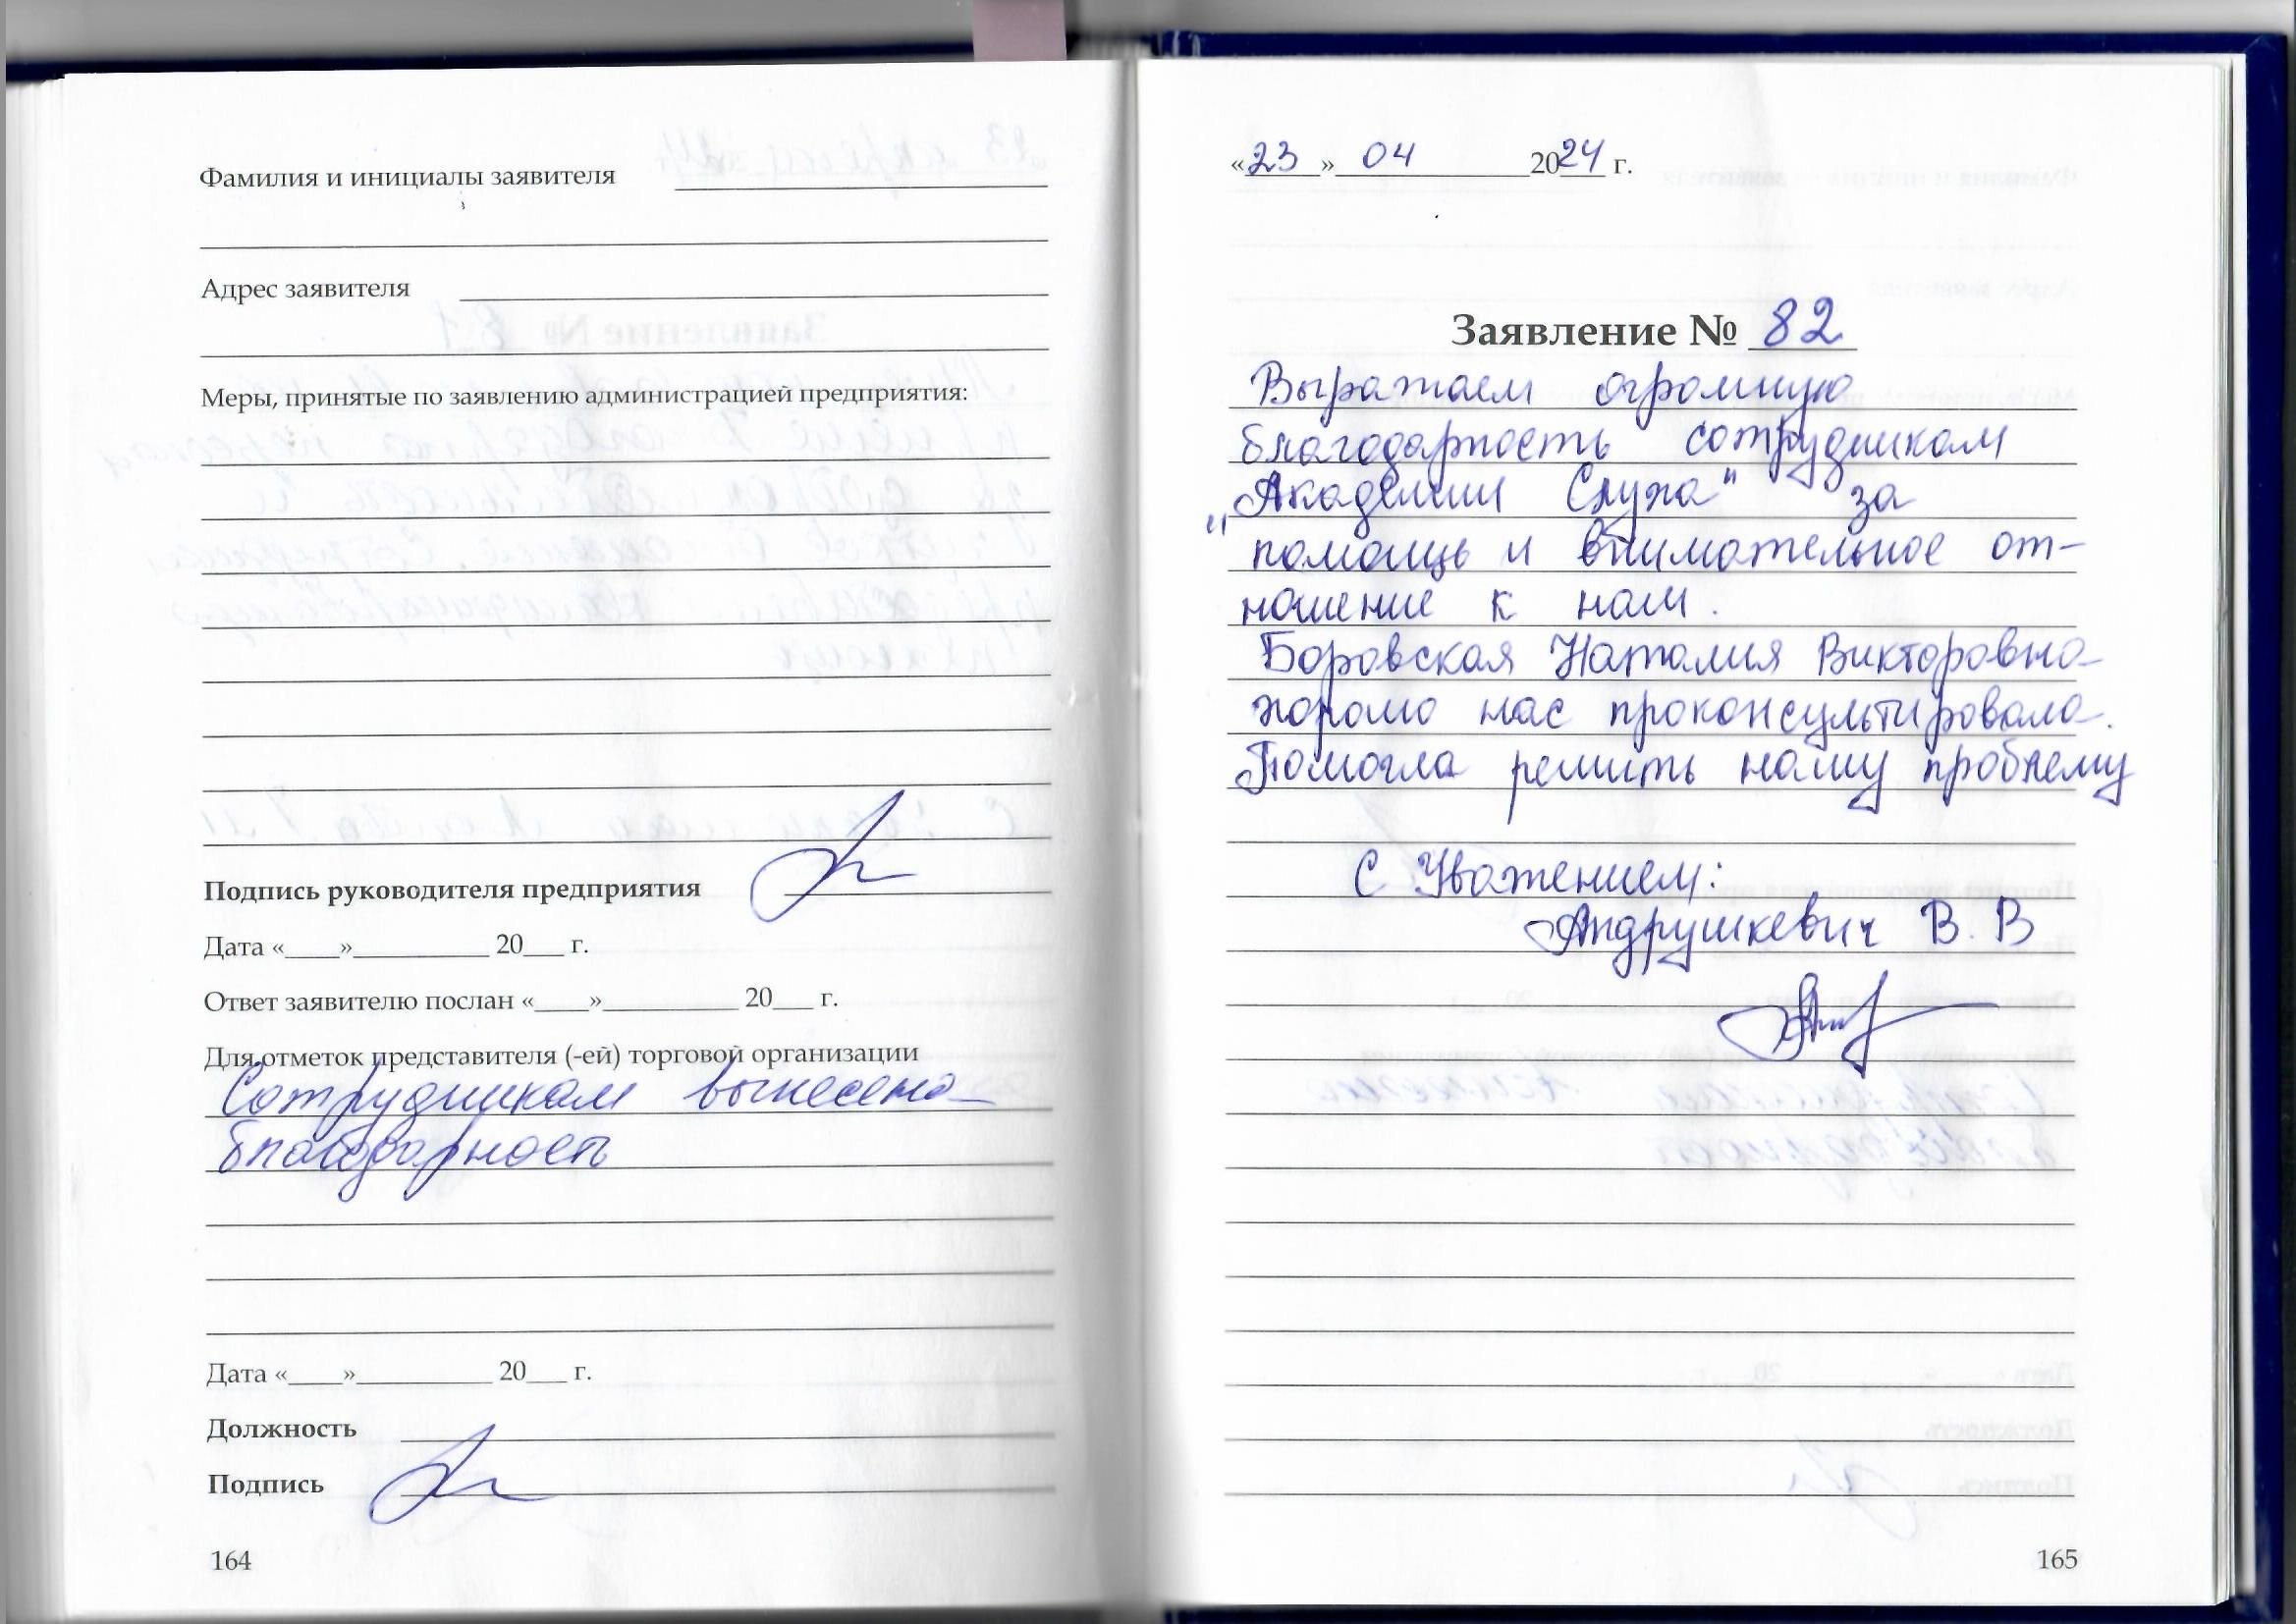 Фамилия и инициалы заявителя
Адрес заявителя
Меры, принятые по заявлению администрацией предприятия:
Подпись руководителя предприятия
Дата «____»__________ 20___ г.
Ответ заявителю послан «____»__________ 20___ г.
Для отметок представителя (-ей) торговой организации
Сотрудникам вынесена
благодарность
Дата «____»__________ 20___ г.
Должность
Подпись
164
«23» 04 2024 г.
Заявление № 82
Выражаем огромную
благодарность сотрудникам
"Академии Слуха" за
помощь и внимательное от-
ношение к нам.
Боровская Наталия Викторовна
хорошо нас проконсультировала.
Помогла решить нашу проблему
С Уважением:
Андрушкевич В. В
165